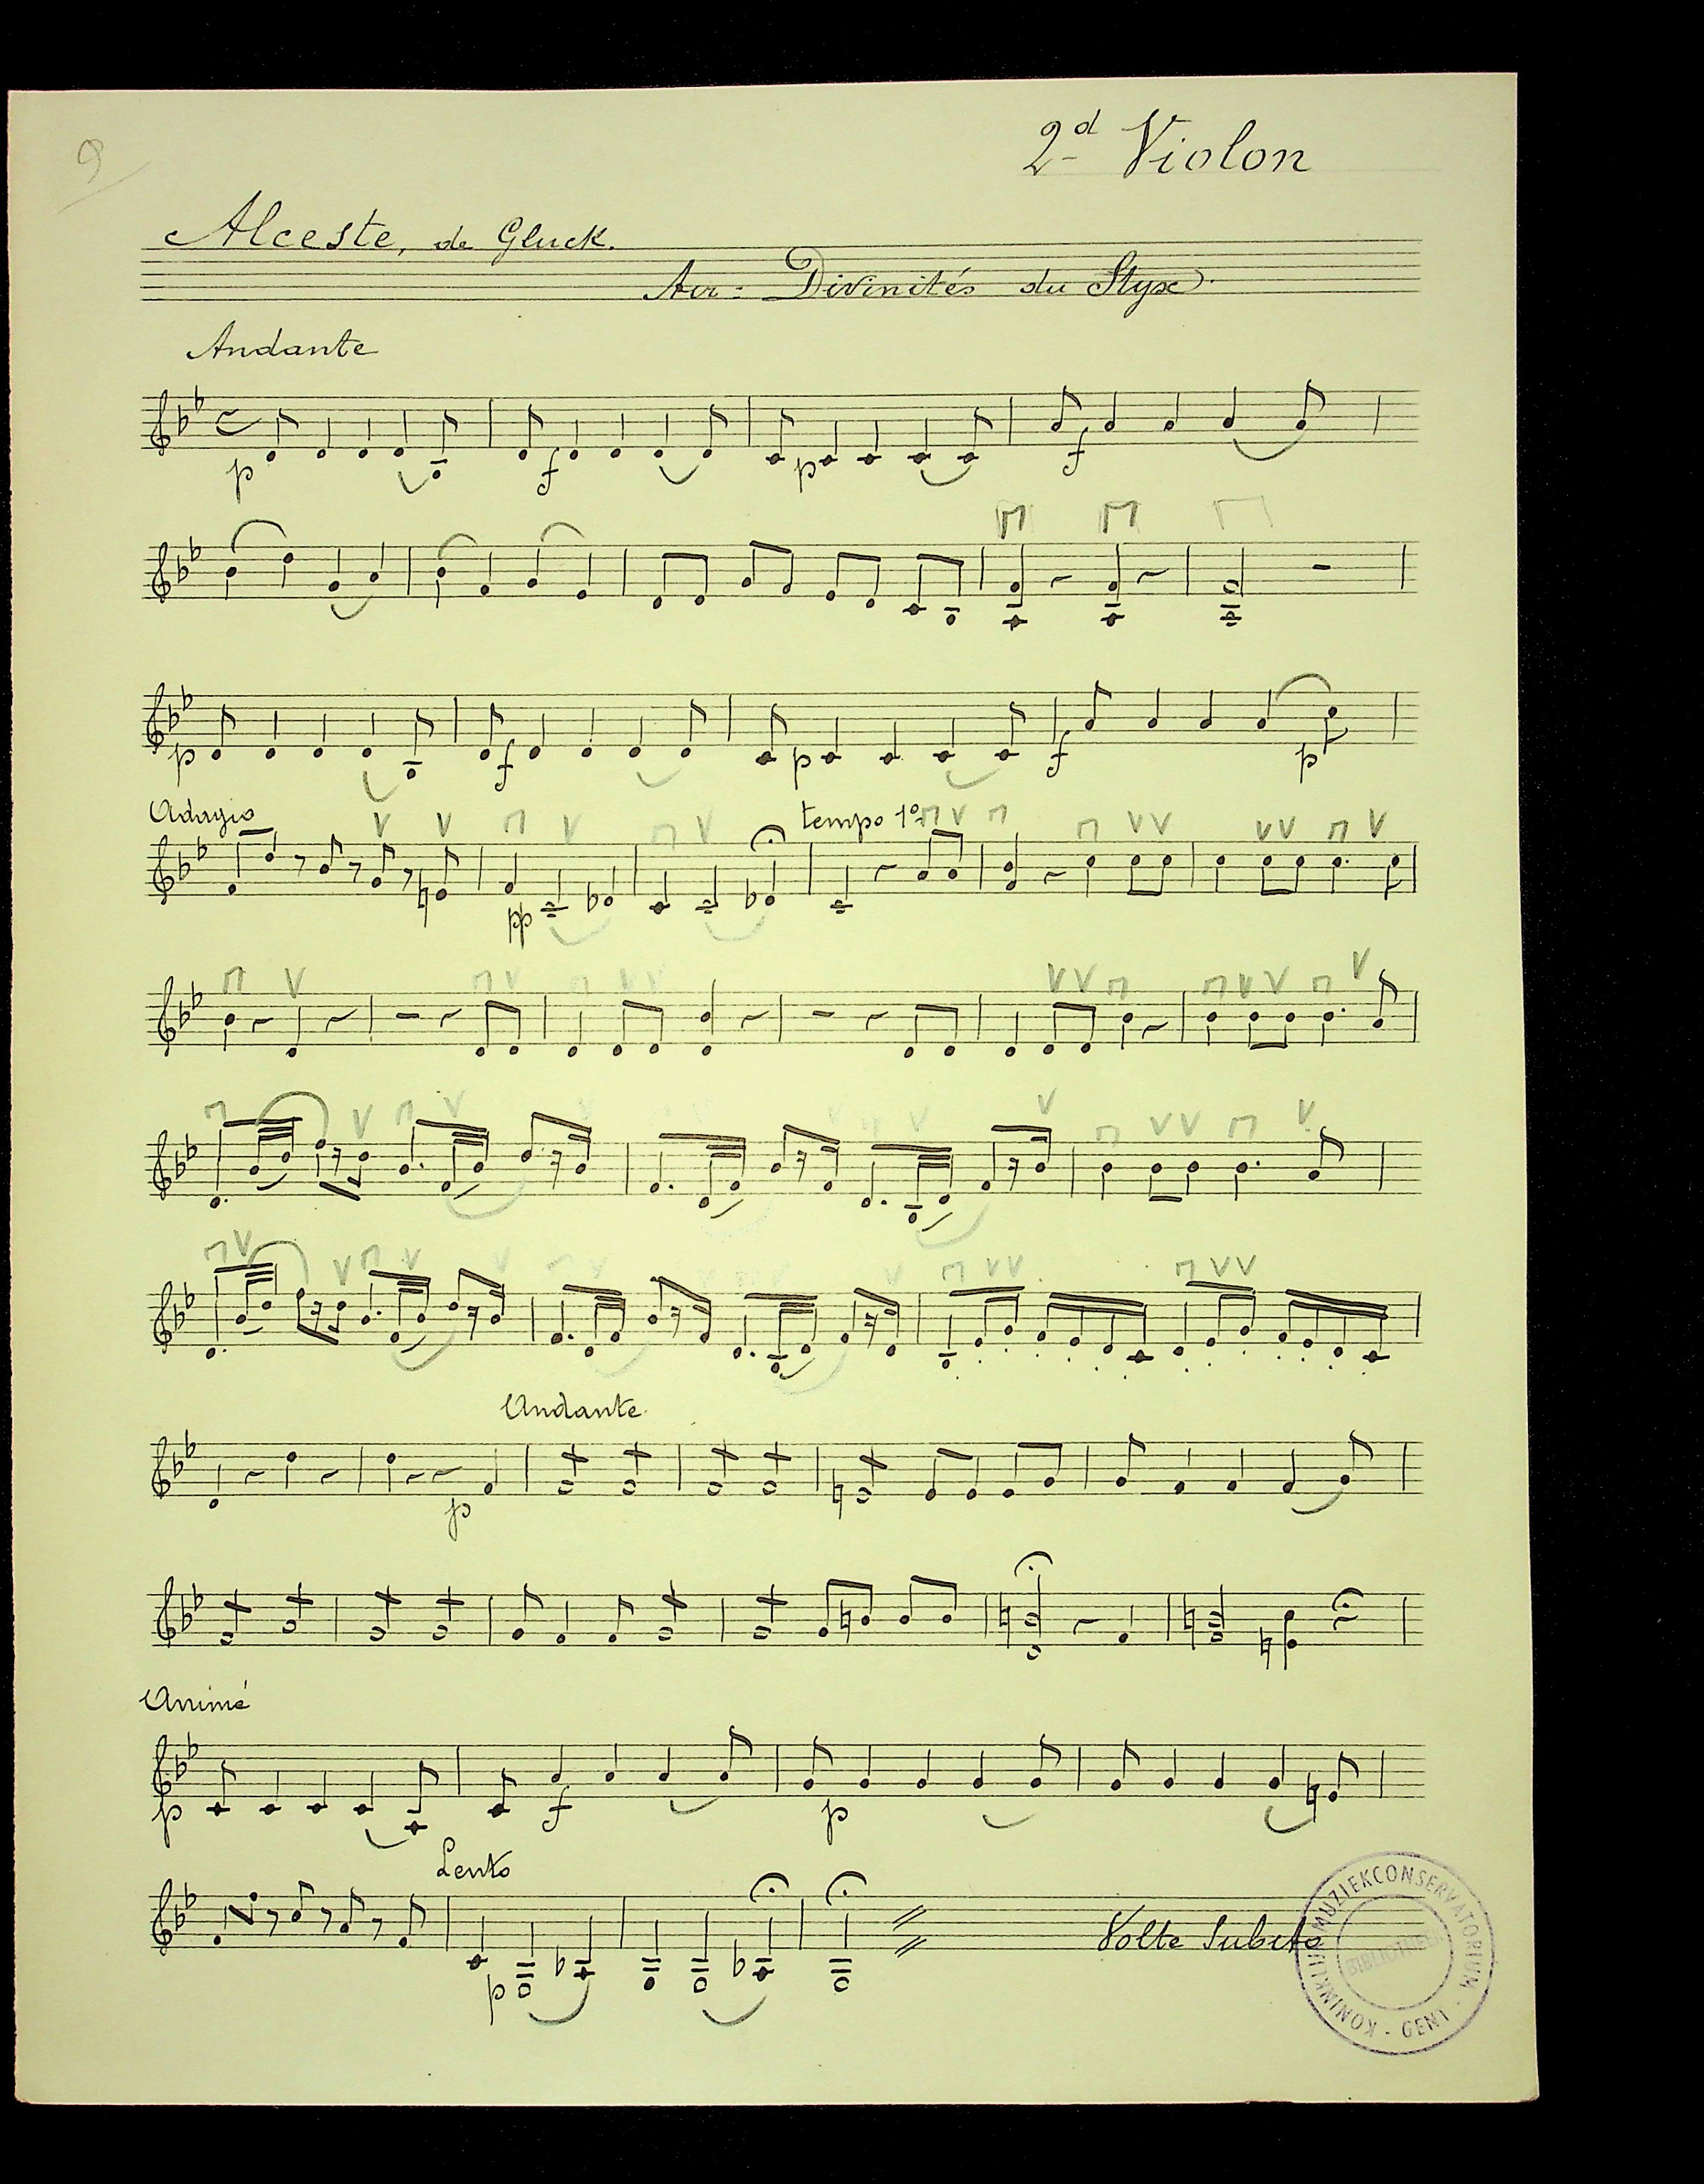 9
2d Violon
Alceste, de Gluck.
Air = Divinités du Styx.
Andante
p f p f
p f p f p
Adagio tempo 1o
pp
Andante
p
Animé
p f p
Lento
p
Volte Subito
KONINKLIJK MUZIEKCONSERVATORIUM · GENT ·
BIBLIOTHEEK